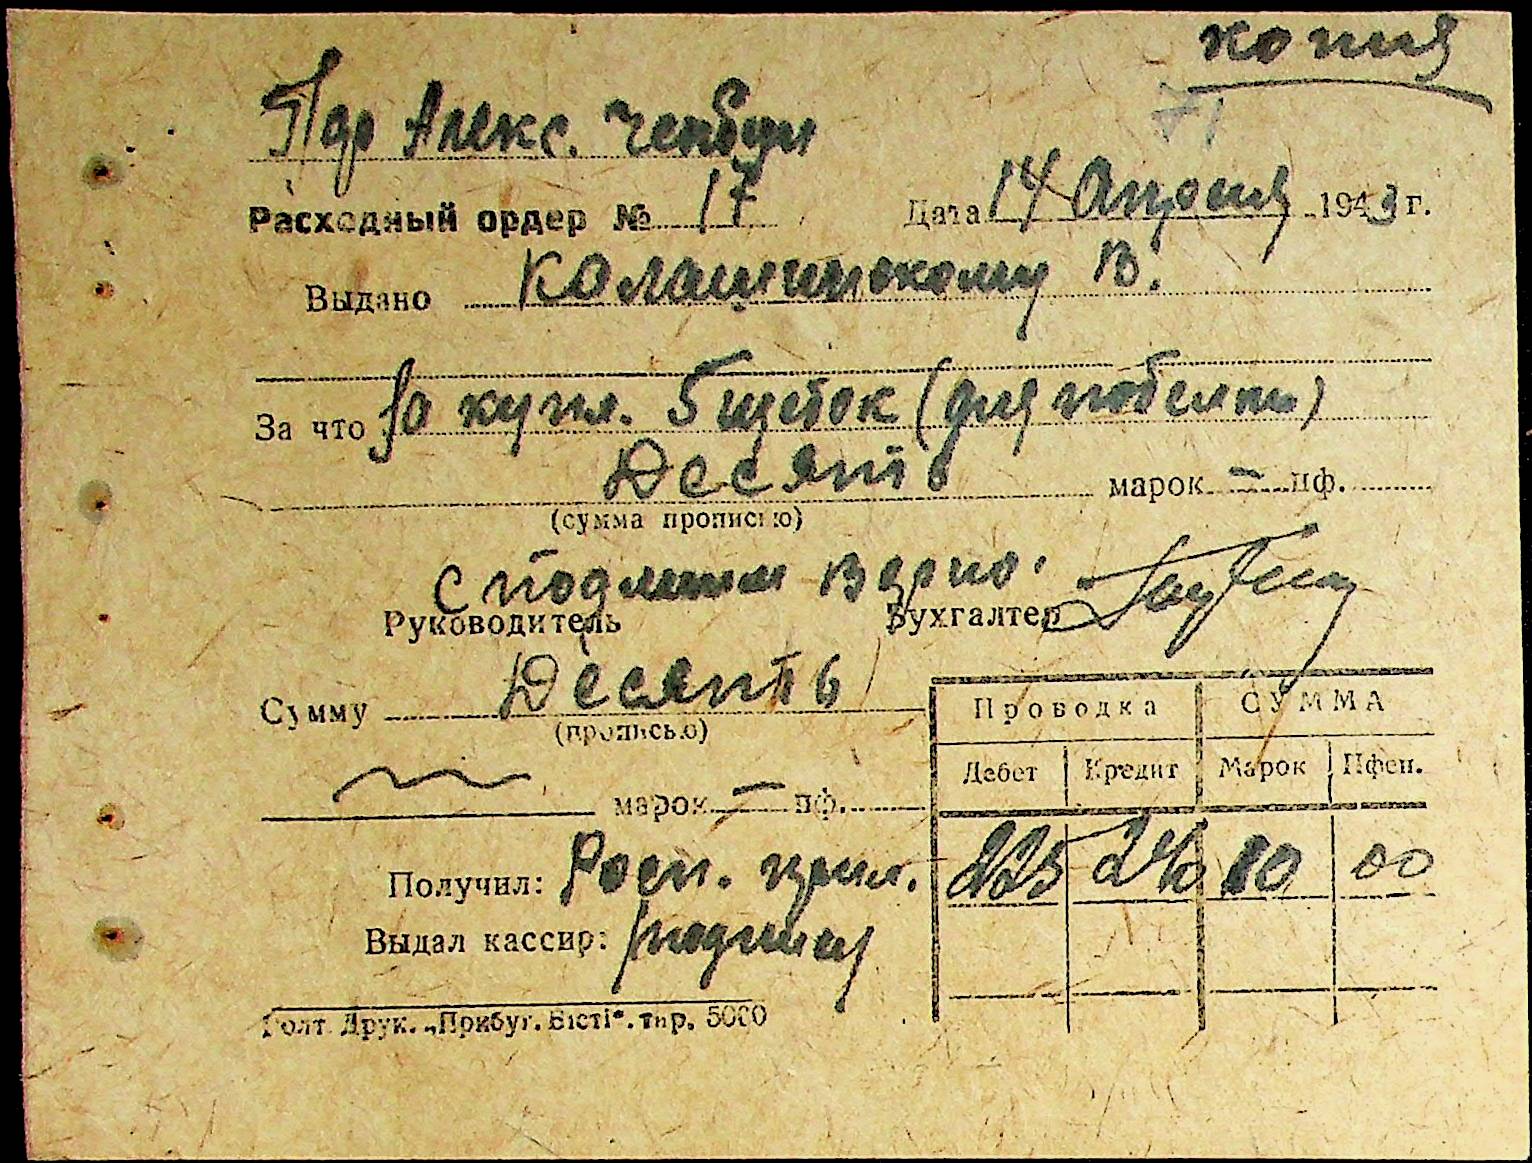 копия
71
Пдр Алекс.
Расходный ордер № 17 Дата 14 Апреля 1943 г.
Выдано Калашинскому В.
За что За купл. 5 щеток (для побелки)
Десять марок — пф.
(сумма прописью)
С подлинным верно.
Руководитель Бухгалтер
Сумму Десять
(прописью)
марок — пф.
Проводка СУММА
Дебет Кредит Марок Пфен.
225 240 10 00
Получил: Расп. прил.
Выдал кассир: (подпись)
Голт. Друк. „Прибуг. Вісті“. тир. 5000